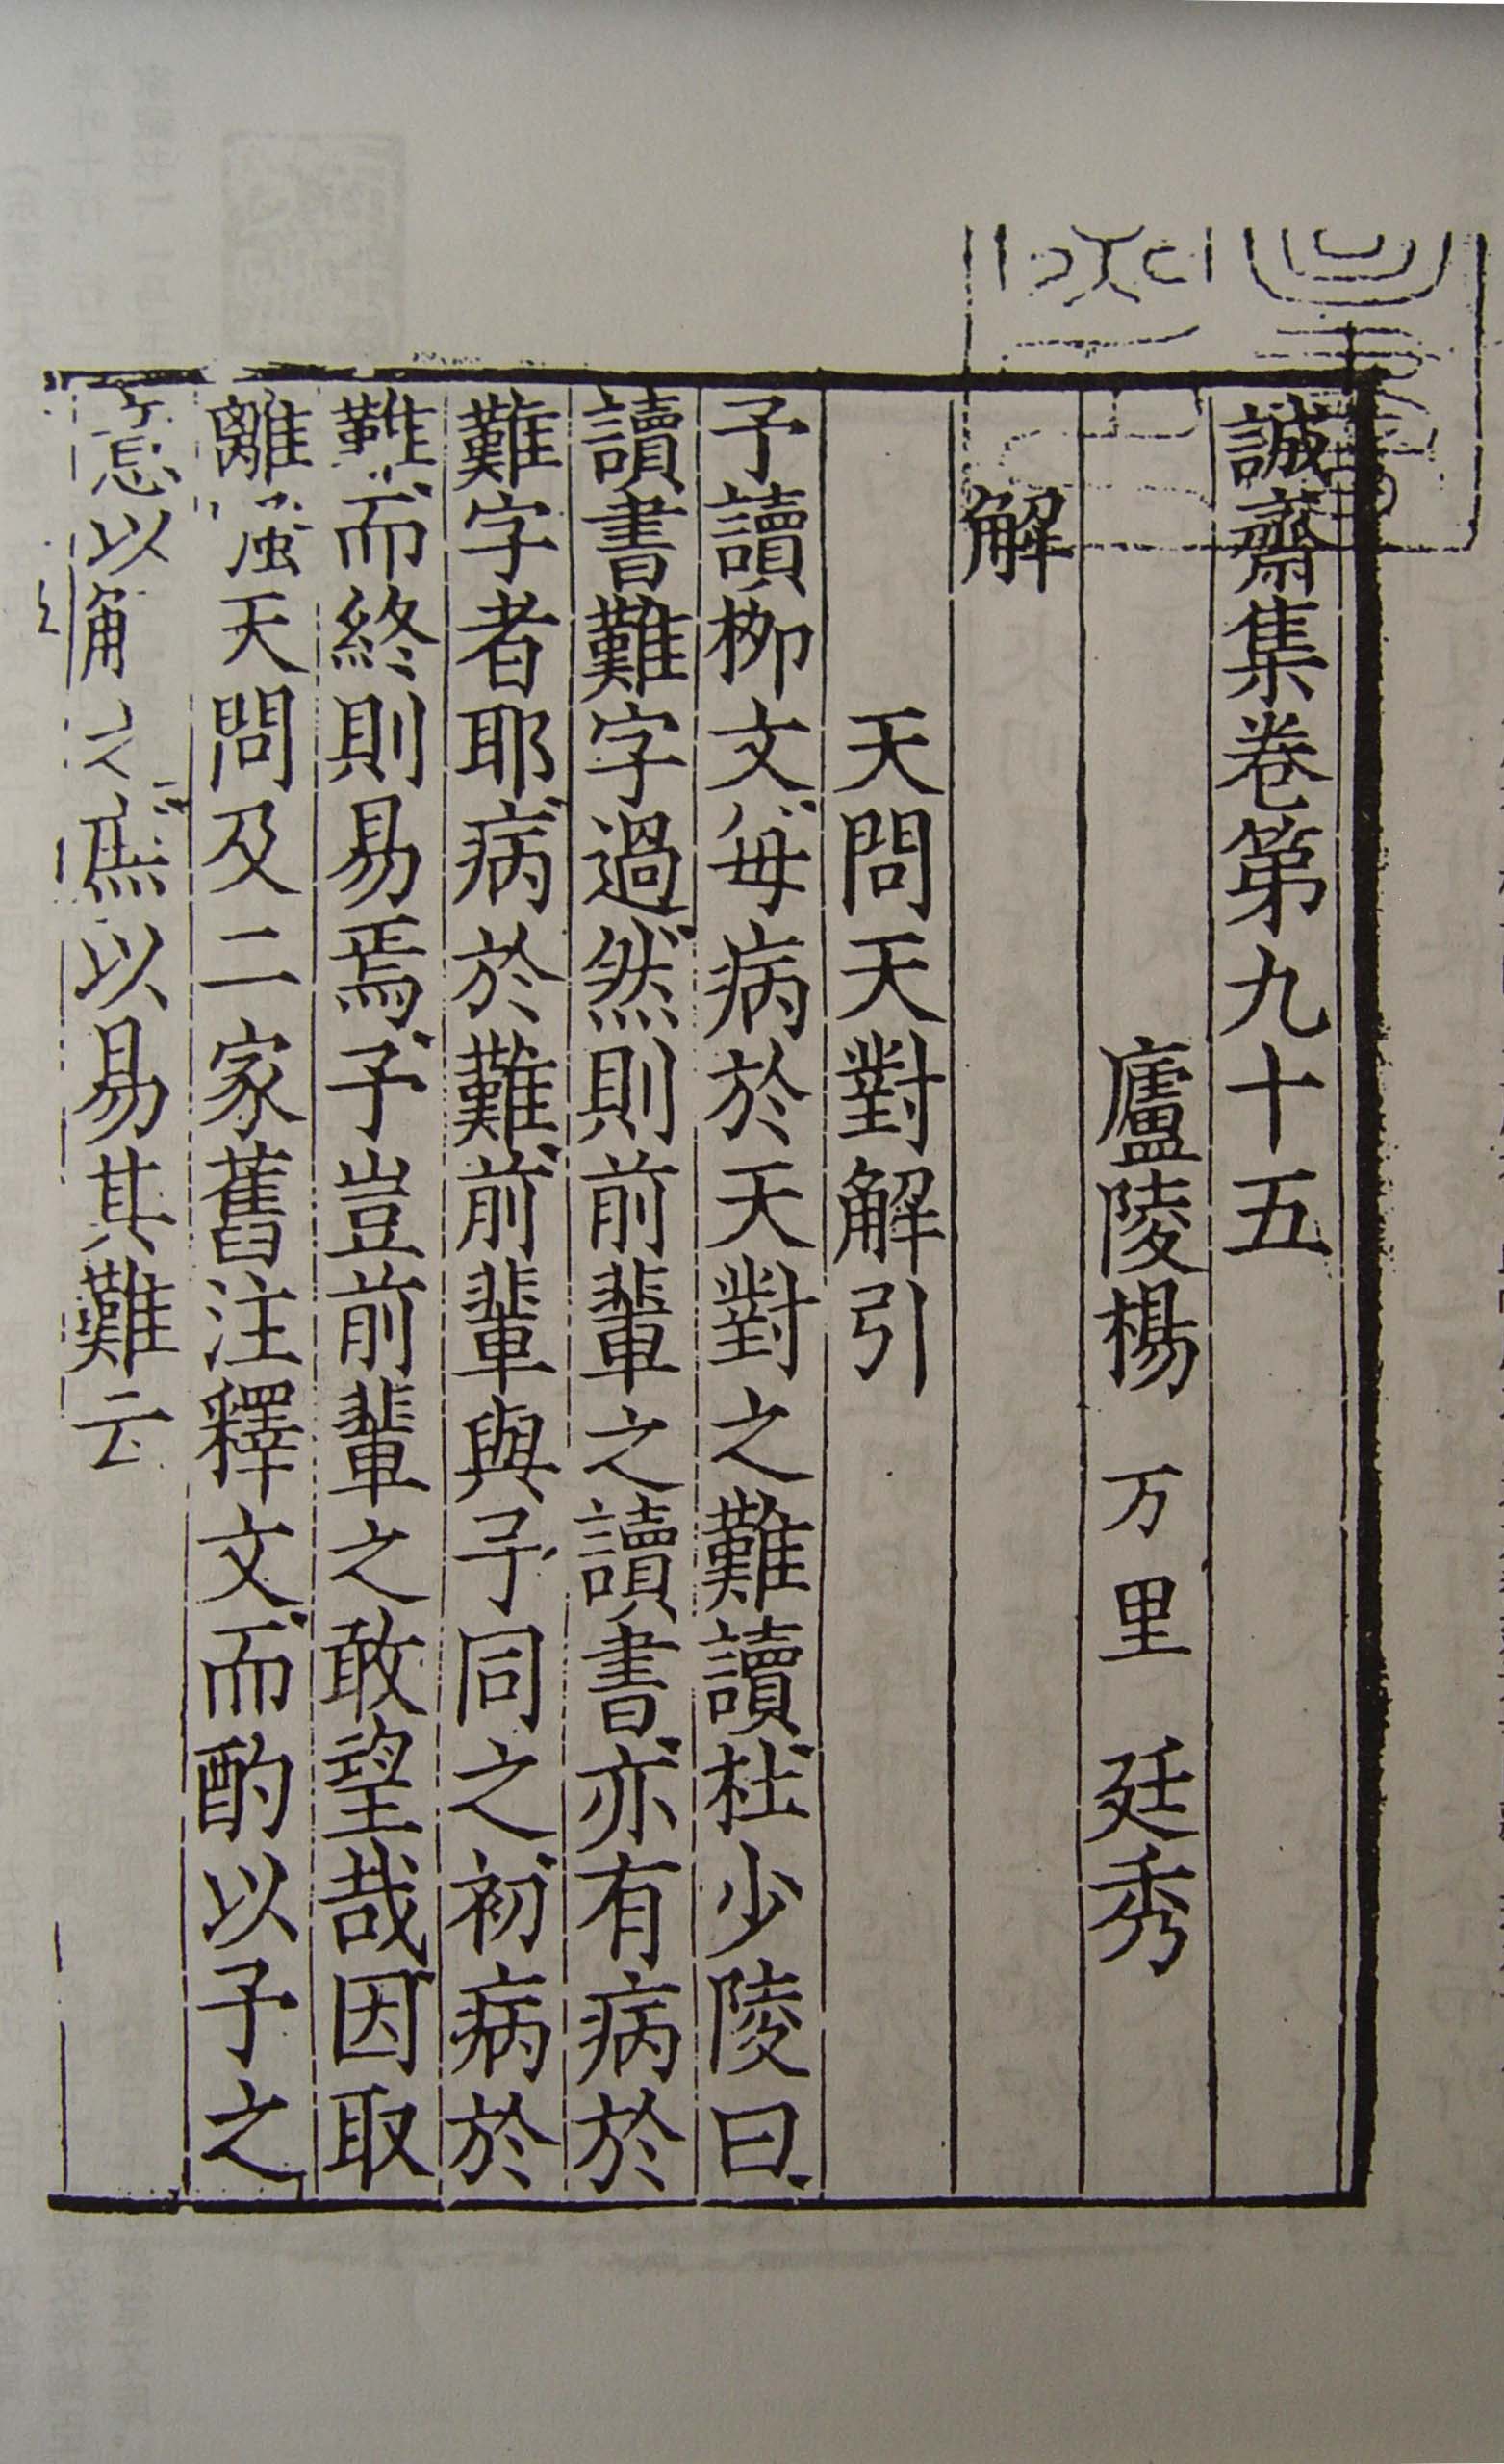 誠齋集卷第九十五
廬陵楊 万里 廷秀
解
天問天對解引
予讀柳文每病於天對之難讀杜少陵曰
讀書難字過然則前輩之讀書亦有病於
難字者耶病於難前輩與予同之初病於
難而終則易焉予豈前輩之敢望哉因取
離騷天問及二家舊注釋文而酌以予之
意以解之庶以易其難云